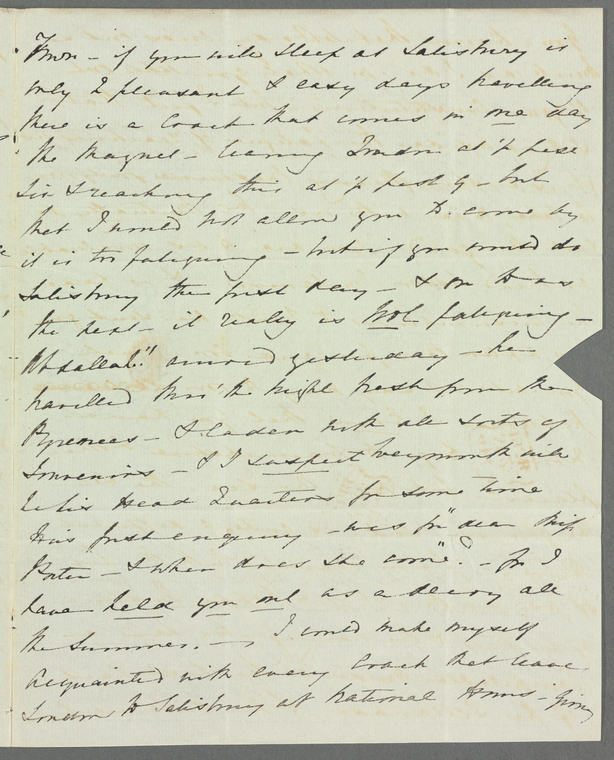 Town – if you will sleep at Salisbury is
only 2 pleasant & easy days travelling
there is a Coach that comes in one day
the Magnet – leaving London at ½ past
six & reaching this at ½ past 9 – but
that I would not allow you to come by
it is too fatiguing – but if you would do
Salisbury the first day – & on to us
the next – it really is not fatiguing –
arrived yesterday – he
travelled thro' the night fresh from the
Pyrenees – & laden with all sorts of
Souvenirs – & I suspect Weymouth will
be his Head Quarters for some time
his first enquiry – was for "dear Miss
Porter – & when does she come"? – for I
have held you out as a decoy all
the Summer. – I could make myself
acquainted with every Coach that leave
London to Salisbury at rational hours – giving